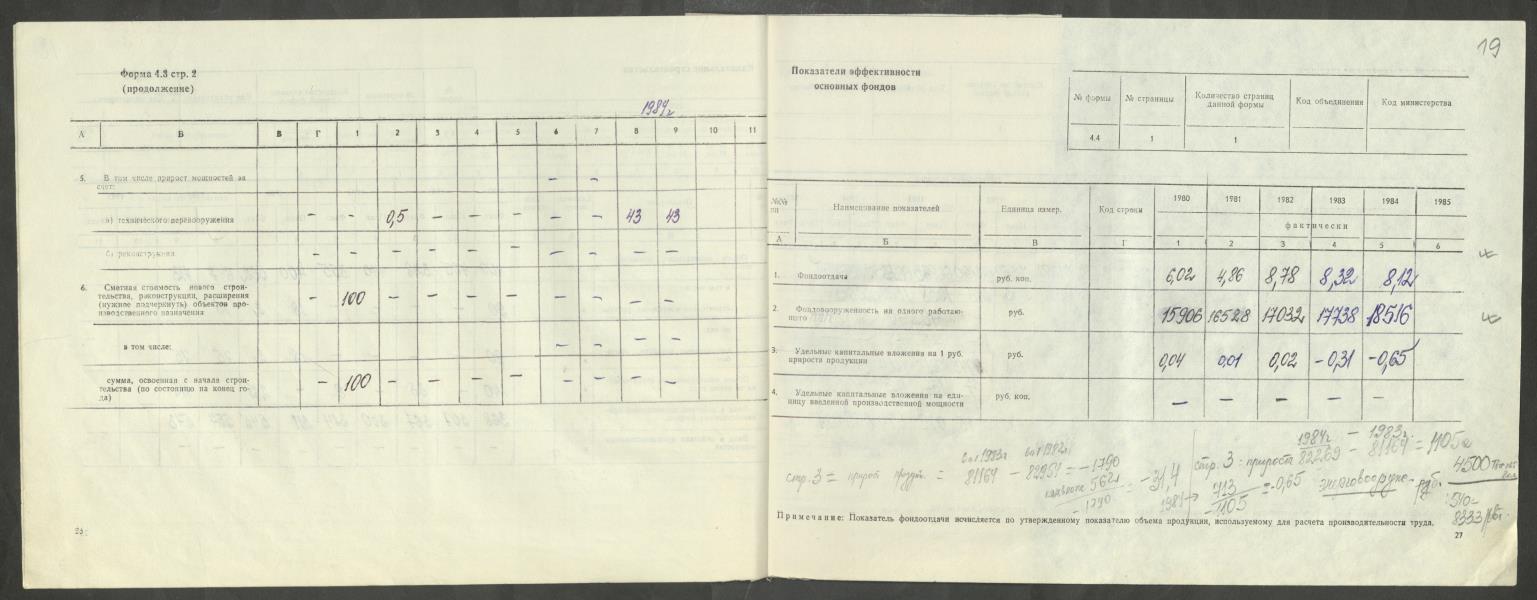 Форма 4.3 стр. 2
(продолжение)
1984г
А Б В Г 1 2 3 4 5 6 7 8 9 10 11
5. В том числе прирост мощностей за
счет: – –
а) технического перевооружения – – 0,5 – – – – – 43 43
б) реконструкция – – – – – – – – – –
6. Сметная стоимость нового строи-
тельства, реконструкции, расширения
(нужное подчеркнуть) объектов про-
изводственного назначения – 100 – – – – – – – –
в том числе: – – – –
сумма, освоенная с начала строи-
тельства (по состоянию на конец го-
да) – 100 – – – – – – – –
19
Показатели эффективности
основных фондов
№ формы № страницы Количество страниц
данной формы Код объединения Код министерства
4.4 1 1
№№
пп Наименование показателей Единица измер. Код строки 1980 1981 1982 1983 1984 1985
фактически
А Б В Г 1 2 3 4 5 6
1. Фондоотдача руб. коп. 6,02 4,86 8,78 8,32 8,12
2. Фондовооруженность на одного работаю-
щего руб. 15906 16528 17032 17738 18516
3. Удельные капитальные вложения на 1 руб.
прироста продукции руб. 0,04 0,01 0,02 -0,31 -0,65
4. Удельные капитальные вложения на еди-
ницу введенной производственной мощности руб. коп. – – – – –
стр. 3 = прирост продук. = 81164 - 82954 = -1790
562
-1790 = -31,4
стр. 3: прироста 1984г - 1983г.
82269 - 81164 = 1105
1984 → 713
-1105 = -0,65 энерговооруже-
4500
: 540 =
8333
Примечание: Показатель фондоотдачи исчисляется по утвержденному показателю объема продукции, используемому для расчета производительности труда.
27